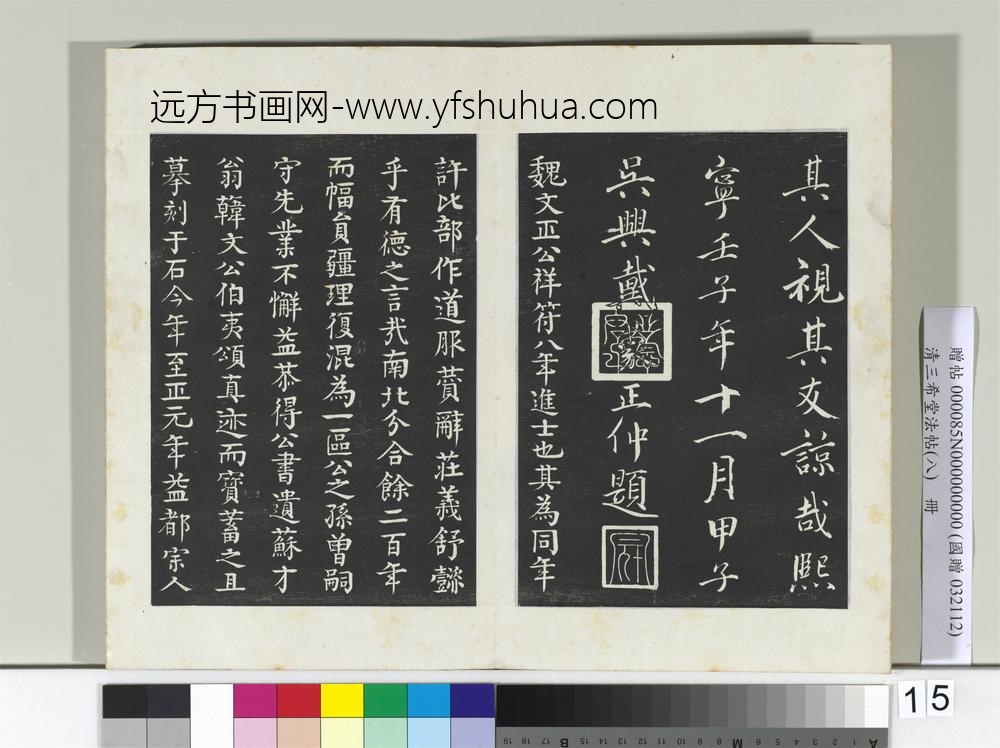 远方书画网-www.yfshuhua.com
其人視其友諒哉熙
寧壬子年十一月甲子
吳興戴
正仲題
魏文正公祥符八年進士也其為同年
許比部作道服賛辭莊義舒懿
乎有德之言哉南北分合餘二百年
而幅員疆理復混為一區公之孫曾嗣
守先業不懈益恭得公書遺蘇才
翁韓文公伯夷頌真迹而寶蓄之且
摹刻于石今年至正元年益都宗人
贈帖 000085N000000000 (國贈 032112)
清三希堂法帖(八) 冊
15